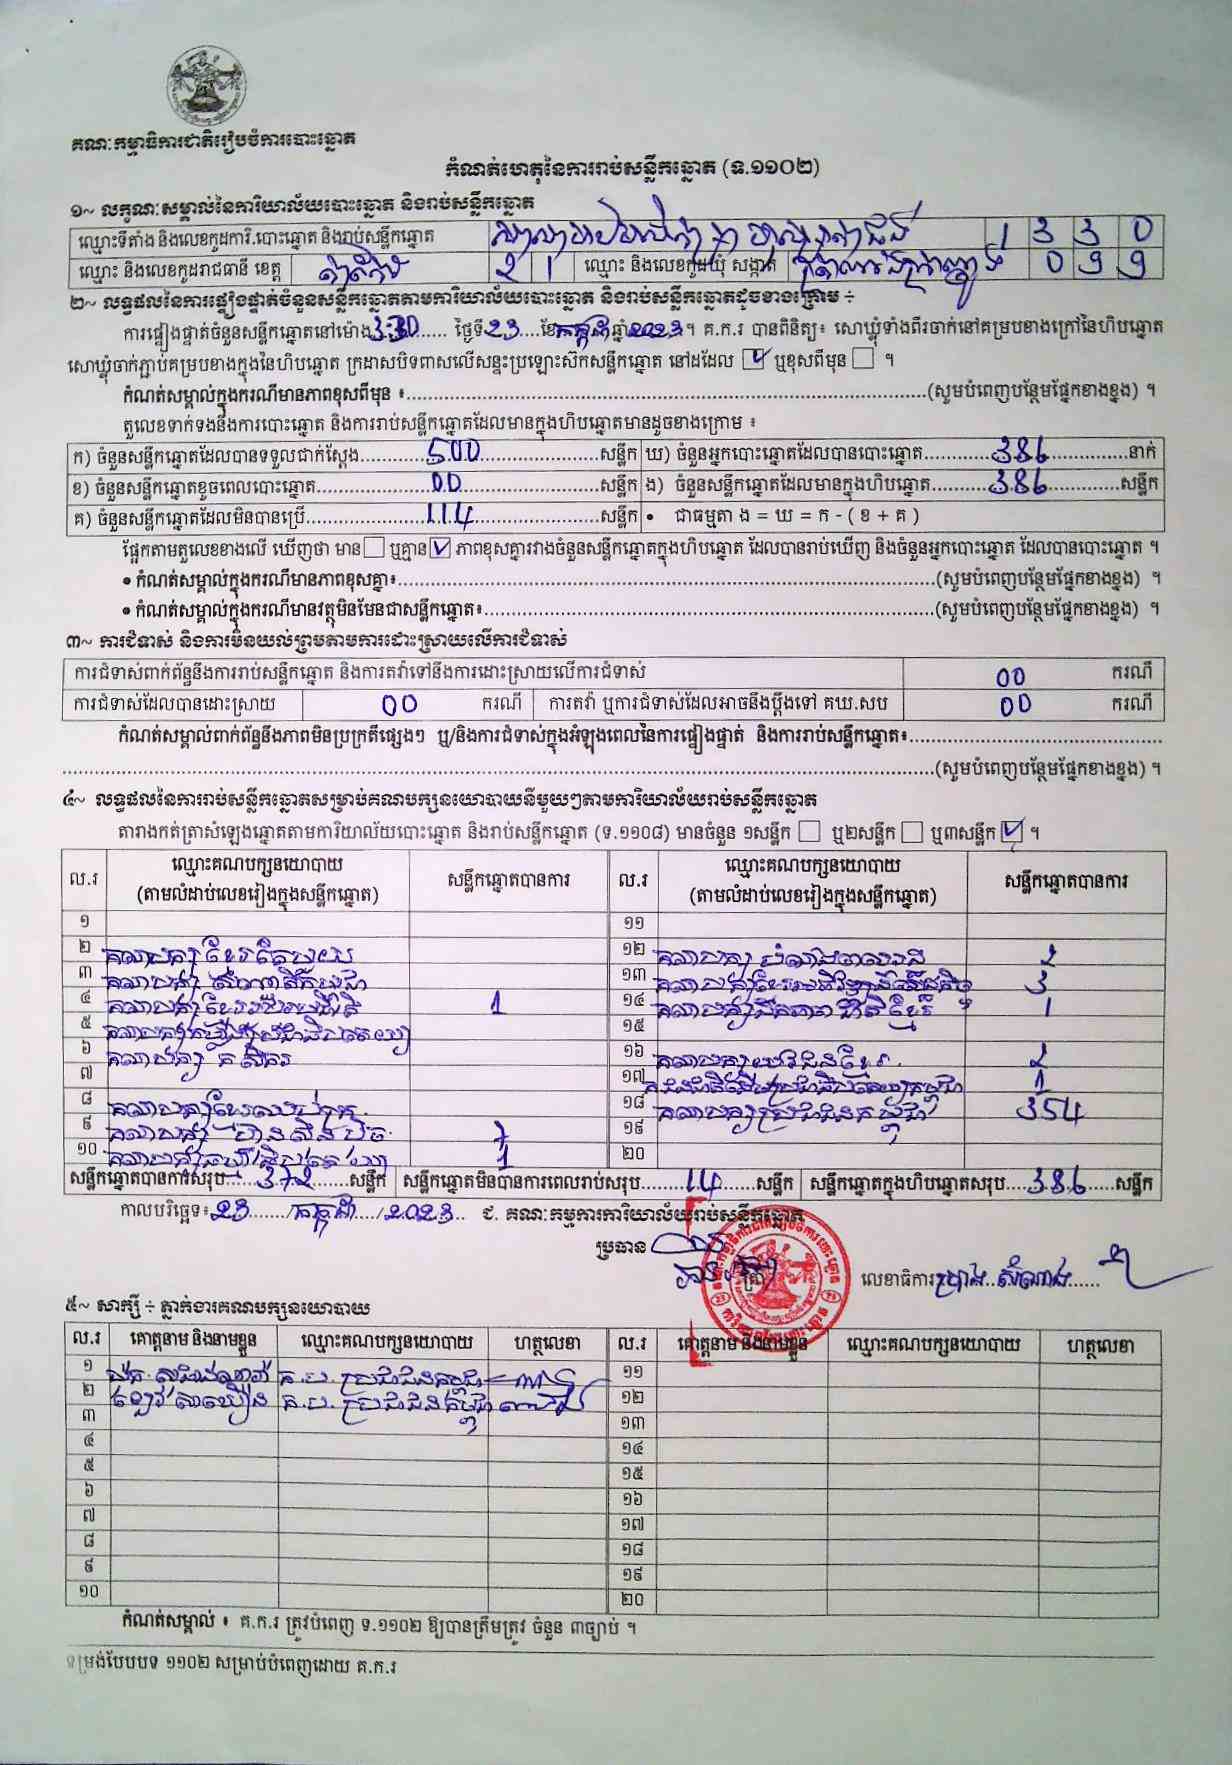 គណៈកម្មាធិការជាតិរៀបចំការបោះឆ្នោត
កំណត់ហេតុនៃការរាប់សន្លឹកឆ្នោត (ទ.១១០២)
១~ លក្ខណៈសម្គាល់នៃការិយាល័យបោះឆ្នោត និងរាប់សន្លឹកឆ្នោត
ឈ្មោះទីតាំង និងលេខកូដការិ.បោះឆ្នោត និងរាប់សន្លឹកឆ្នោត 1 3 3 0
ឈ្មោះ និងលេខកូដរាជធានី ខេត្ត តាកែវ 2 1 ឈ្មោះ និងលេខកូដឃុំ សង្កាត់ 0 9 9
២~ លទ្ធផលនៃការផ្ទៀងផ្ទាត់ចំនួនសន្លឹកឆ្នោតតាមការិយាល័យបោះឆ្នោត និងរាប់សន្លឹកឆ្នោតដូចខាងក្រោម ÷
ការផ្ទៀងផ្ទាត់ចំនួនសន្លឹកឆ្នោតនៅម៉ោង 3:30 ថ្ងៃទី 23 ខែ កក្កដា ឆ្នាំ 2023 ។ គ.ក.រ បានពិនិត្យ៖ សោឃ្លុំទាំងពីរចាក់នៅគម្របខាងក្រៅនៃហិបឆ្នោត
សោឃ្លុំចាក់ភ្ជាប់គម្របខាងក្នុងនៃហិបឆ្នោត ក្រដាសបិទពាសលើសន្ទះប្រឡោះស៊កសន្លឹកឆ្នោត នៅដដែល ☑ ឬខុសពីមុន ☐ ។
កំណត់សម្គាល់ក្នុងករណីមានភាពខុសពីមុន ៖ (សូមបំពេញបន្ថែមផ្នែកខាងខ្នង) ។
តួលេខទាក់ទងនឹងការបោះឆ្នោត និងការរាប់សន្លឹកឆ្នោតដែលមានក្នុងហិបឆ្នោតមានដូចខាងក្រោម ៖
ក) ចំនួនសន្លឹកឆ្នោតដែលបានទទួលជាក់ស្តែង 500 សន្លឹក ឃ) ចំនួនអ្នកបោះឆ្នោតដែលបានបោះឆ្នោត 386 នាក់
ខ) ចំនួនសន្លឹកឆ្នោតខូចពេលបោះឆ្នោត 00 សន្លឹក ង) ចំនួនសន្លឹកឆ្នោតដែលមានក្នុងហិបឆ្នោត 386 សន្លឹក
គ) ចំនួនសន្លឹកឆ្នោតដែលមិនបានប្រើ 114 សន្លឹក • ជាធម្មតា ង = ឃ = ក - ( ខ + គ )
ផ្អែកតាមតួលេខខាងលើ ឃើញថា មាន ☐ ឬគ្មាន ☑ ភាពខុសគ្នារវាងចំនួនសន្លឹកឆ្នោតក្នុងហិបឆ្នោត ដែលបានរាប់ឃើញ និងចំនួនអ្នកបោះឆ្នោត ដែលបានបោះឆ្នោត ។
• កំណត់សម្គាល់ក្នុងករណីមានភាពខុសគ្នា៖ (សូមបំពេញបន្ថែមផ្នែកខាងខ្នង) ។
• កំណត់សម្គាល់ក្នុងករណីមានវត្ថុមិនមែនជាសន្លឹកឆ្នោត៖ (សូមបំពេញបន្ថែមផ្នែកខាងខ្នង) ។
៣~ ការជំទាស់ និងការមិនយល់ព្រមតាមការដោះស្រាយលើការជំទាស់
ការជំទាស់ពាក់ព័ន្ធនឹងការរាប់សន្លឹកឆ្នោត និងការតវ៉ាទៅនឹងការដោះស្រាយលើការជំទាស់ 00 ករណី
ការជំទាស់ដែលបានដោះស្រាយ 00 ករណី ការតវ៉ា ឬការជំទាស់ដែលអាចនឹងប្តឹងទៅ គឃ.សប 00 ករណី
កំណត់សម្គាល់ពាក់ព័ន្ធនឹងភាពមិនប្រក្រតីផ្សេងៗ ឬ/និងការជំទាស់ក្នុងអំឡុងពេលនៃការផ្ទៀងផ្ទាត់ និងការរាប់សន្លឹកឆ្នោត៖
(សូមបំពេញបន្ថែមផ្នែកខាងខ្នង) ។
៤~ លទ្ធផលនៃការរាប់សន្លឹកឆ្នោតសម្រាប់គណបក្សនយោបាយនីមួយៗតាមការិយាល័យរាប់សន្លឹកឆ្នោត
តារាងកត់ត្រាសំឡេងឆ្នោតតាមការិយាល័យបោះឆ្នោត និងរាប់សន្លឹកឆ្នោត (ទ.១១០៨) មានចំនួន ១សន្លឹក ☐ ឬ២សន្លឹក ☐ ឬ៣សន្លឹក ☑ ។
ល.រ ឈ្មោះគណបក្សនយោបាយ (តាមលំដាប់លេខរៀងក្នុងសន្លឹកឆ្នោត) សន្លឹកឆ្នោតបានការ ល.រ ឈ្មោះគណបក្សនយោបាយ (តាមលំដាប់លេខរៀងក្នុងសន្លឹកឆ្នោត) សន្លឹកឆ្នោតបានការ
១ ១១
២ ១២ 2
៣ ១៣ 3
៤ 1 ១៤ 1
៥ ១៥
៦ គណបក្ស កសិករ ១៦ គណបក្សយុវជនខ្មែរ 2
៧ ១៧ 1
៨ ១៨ គណបក្សប្រជាជនកម្ពុជា 354
៩ 7 ១៩
១០ 1 ២០
សន្លឹកឆ្នោតបានការសរុប 372 សន្លឹក សន្លឹកឆ្នោតមិនបានការពេលរាប់សរុប 14 សន្លឹក សន្លឹកឆ្នោតក្នុងហិបឆ្នោតសរុប 386 សន្លឹក
កាលបរិច្ឆេទ៖ 23 / កក្កដា / 2023 ជ. គណៈកម្មការការិយាល័យរាប់សន្លឹកឆ្នោត
ប្រធាន
លេខាធិការ ប្រាង សំណាង
៥~ សាក្សី ÷ ភ្នាក់ងារគណបក្សនយោបាយ
ល.រ គោត្តនាម និងនាមខ្លួន ឈ្មោះគណបក្សនយោបាយ ហត្ថលេខា ល.រ គោត្តនាម និងនាមខ្លួន ឈ្មោះគណបក្សនយោបាយ ហត្ថលេខា
១ គ.ប. ប្រជាជនកម្ពុជា ១១
២ គ.ប. ប្រជាជនកម្ពុជា ១២
៣ ១៣
៤ ១៤
៥ ១៥
៦ ១៦
៧ ១៧
៨ ១៨
៩ ១៩
១០ ២០
កំណត់សម្គាល់ ៖ គ.ក.រ ត្រូវបំពេញ ទ.១១០២ ឱ្យបានត្រឹមត្រូវ ចំនួន ៣ច្បាប់ ។
ទម្រង់បែបបទ ១១០២ សម្រាប់បំពេញដោយ គ.ក.រ